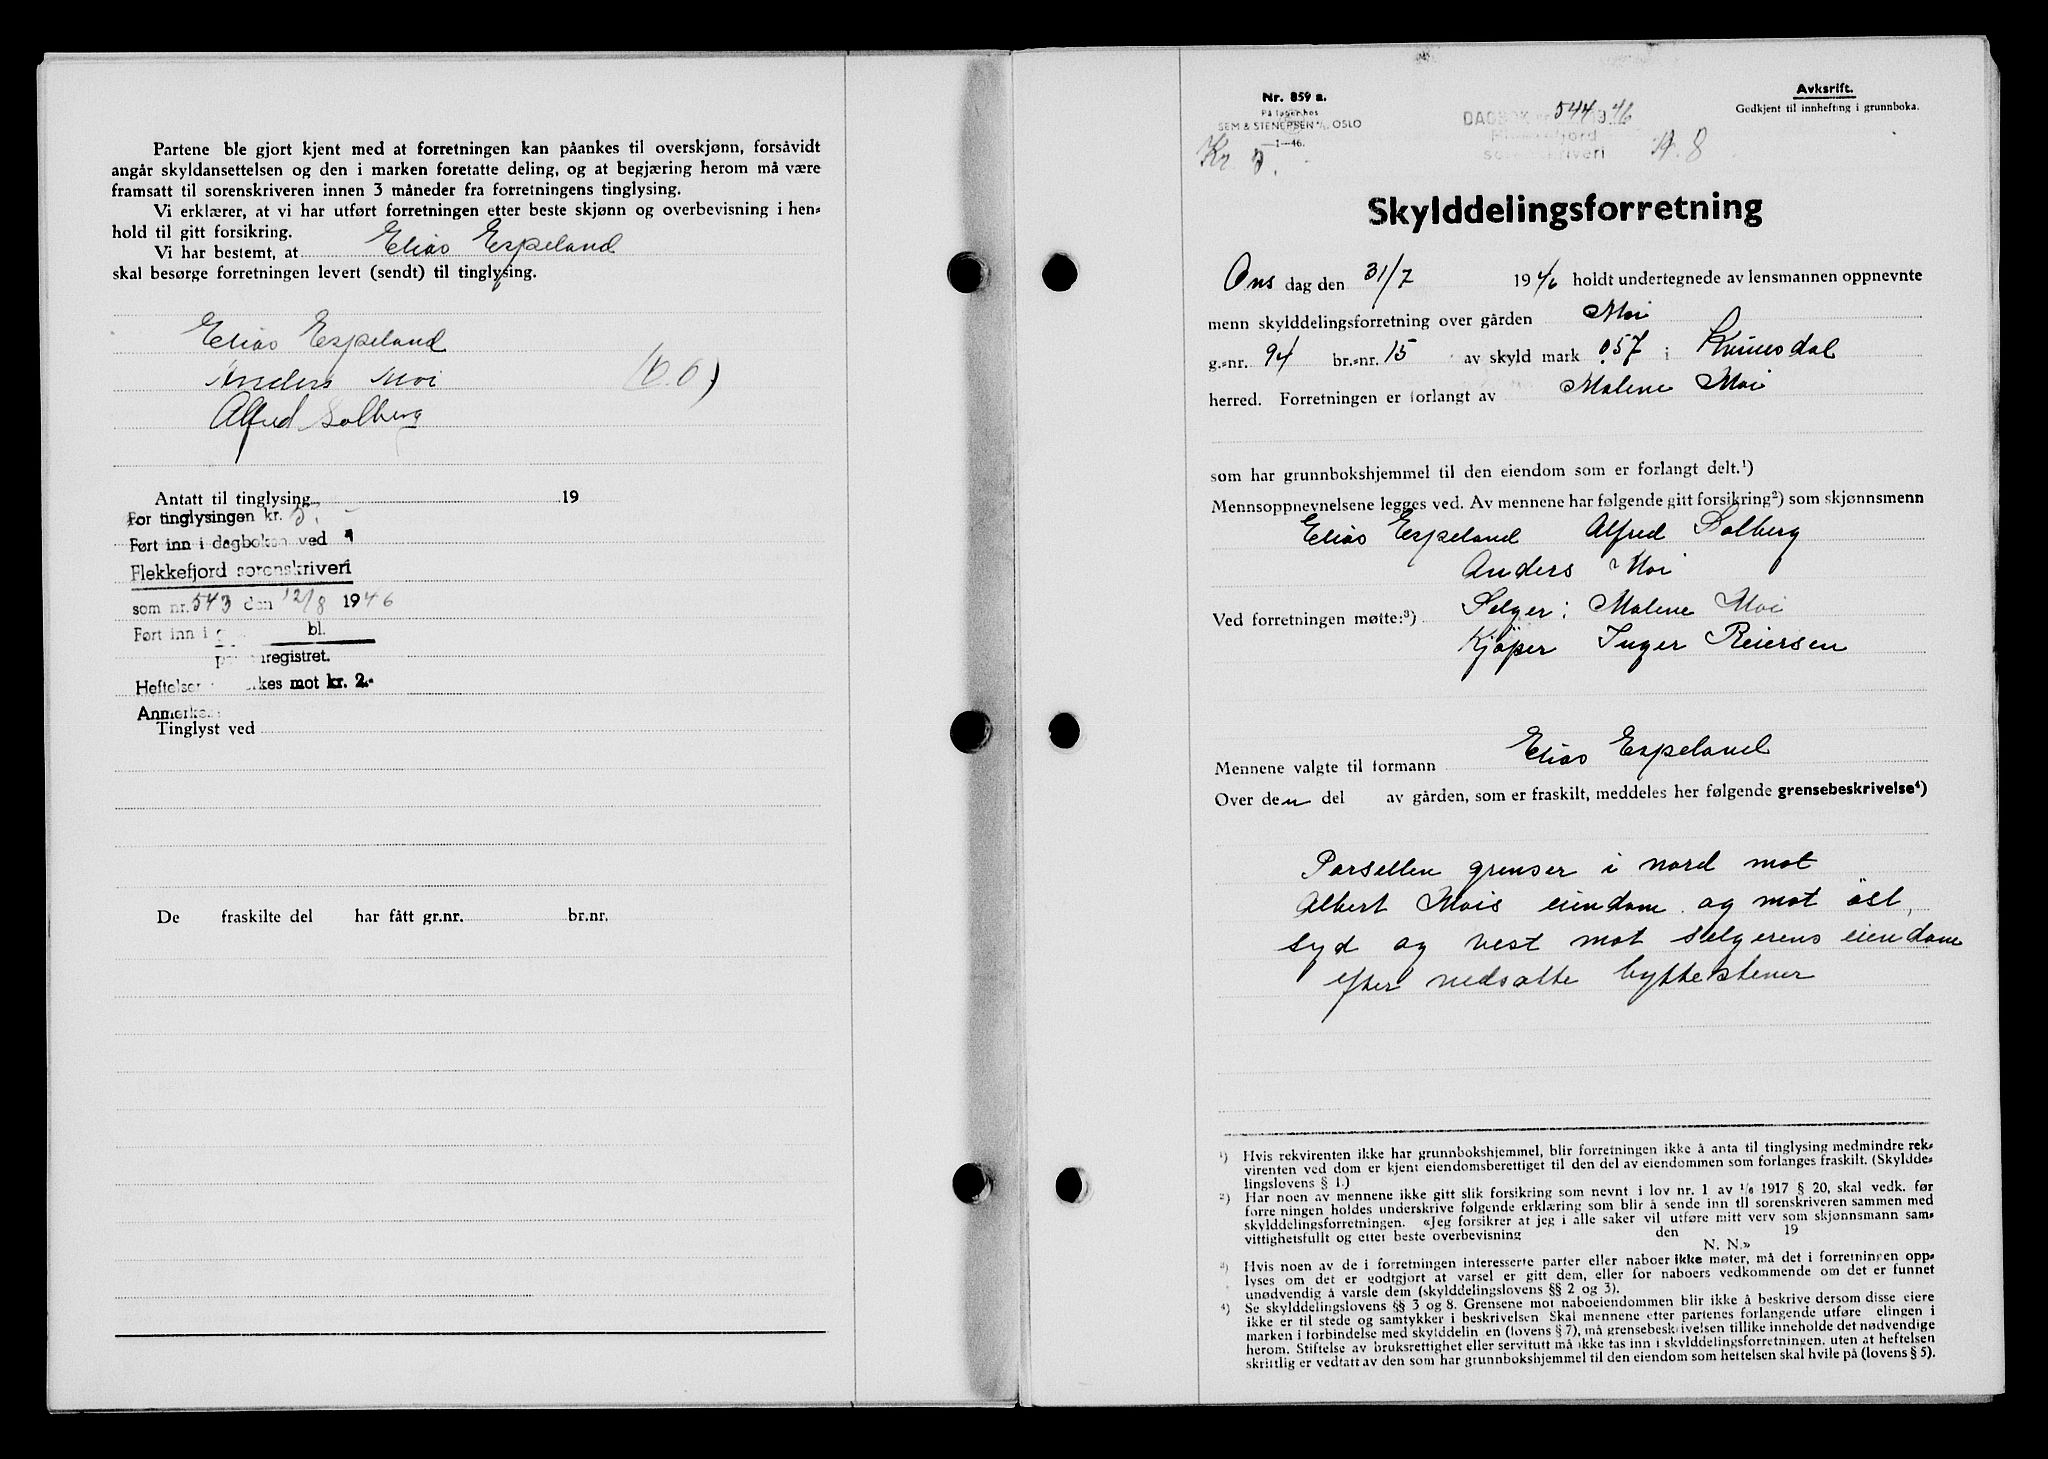 Partene ble gjort kjent med at forretningen kan påankes til overskjønn, forsåvidt
angår skyldansettelsen og den i marken foretatte deling, og at begjæring herom må være
framsatt til sorenskriveren innen 3 måneder fra forretningens tinglysing.
Vi erklærer, at vi har utført forretningen etter beste skjønn og overbevisning i hen=
hold til gitt forsikring.
Vi har bestemt, at Elias Espeland
skal besørge forretningen levert (sendt) til tinglysing.
Elias Espeland
Anders Moi
Alfred Solberg
Antatt til tinglysing 19
For tinglysingen kr. 5.-
Ført inn i dagboken ved
Flekkefjord sorenskriveri
som nr. 543 den 12/8 1946
Ført inn i bl.
registret.
mot kr. 2.-
Tinglyst ved
De fraskilte del har fått gr.nr. br.nr.
Nr. 859 a.
På lager hos
SEM & STENERSEN A/S OSLO
1—46.
Avskrift.
Godkjent til innhefting i grunnboka.
DAGBOK nr. 544 1946
Flekkefjord
sorenskriveri
Kr. 5.
Skylddelingsforretning
Ons dag den 31/7 1946 holdt undertegnede av lensmannen oppnevnte
menn skylddelingsforretning over gården Moi
g.=nr. 94 br.=nr. 15 av skyld mark 0.57 i Kvinesdal
herred. Forretningen er forlangt av Malene Moi
som har grunnbokshjemmel til den eiendom som er forlangt delt.¹)
Mennsoppnevnelsene legges ved. Av mennene har følgende gitt forsikring²) som skjønnsmenn
Elias Espeland Alfred Solberg
Anders Moi
Ved forretningen møtte:³) Selger: Malene Moi
Kjøper Inger Reiersen
Mennene valgte til formann Elias Espeland
Over den del av gården, som er fraskilt, meddeles her følgende grensebeskrivelse⁴)
Parsellen grenser i nord mot
Albert Mois eiendom og mot öst,
syd og vest mot selgerens eiendom
efter nedsatte byttestener
¹) Hvis rekvirenten ikke har grunnbokshjemmel, blir forretningen ikke å anta til tinglysing medmindre rek=
virenten ved dom er kjent eiendomsberettiget til den del av eiendommen som forlanges fraskilt. (Skyldde=
lingslovens § 1.)
²) Har noen av mennene ikke gitt slik forsikring som nevnt i lov nr. 1 av 1/6 1917 § 20, skal vedk. før
forre ningen holdes underskrive følgende erklæring som blir å sende inn til sorenskriveren sammen med
skylddelingsforretningen. «Jeg forsikrer at jeg i alle saker vil utføre mitt verv som skjønnsmann sam=
vittighetsfullt og etter beste overbevisning den 19
N. N.»
³) Hvis noen av de i forretningen interesserte parter eller naboer ikke møter, må det i forretningen opp=
lyses om det er godtgjort at varsel er gitt dem, eller for naboers vedkommende om det er funnet
unødvendig å varsle dem (skylddelingslovens §§ 2 og 3).
⁴) Se skylddelingslovens §§ 3 og 8. Grensene mot naboeiendommen blir ikke å beskrive dersom disse eiere
ikke er til stede og samtykker i beskrivelsen Skal mennene etter partenes forlangende utføre elingen i
marken i forbindelse med skylddelin en (lovens § 7), må grensebeskrivelsen tillike inneholde det nødvendige
herom. Stiftelse av bruksrettighet eller servitutt må ikke tas inn i skylddelingsforretningen, uten at heftelsen
skriftlig er vedtatt av den som har grunnbokshjemmel til den eiendom som heftelsen skal hvile på (lovens § 5).